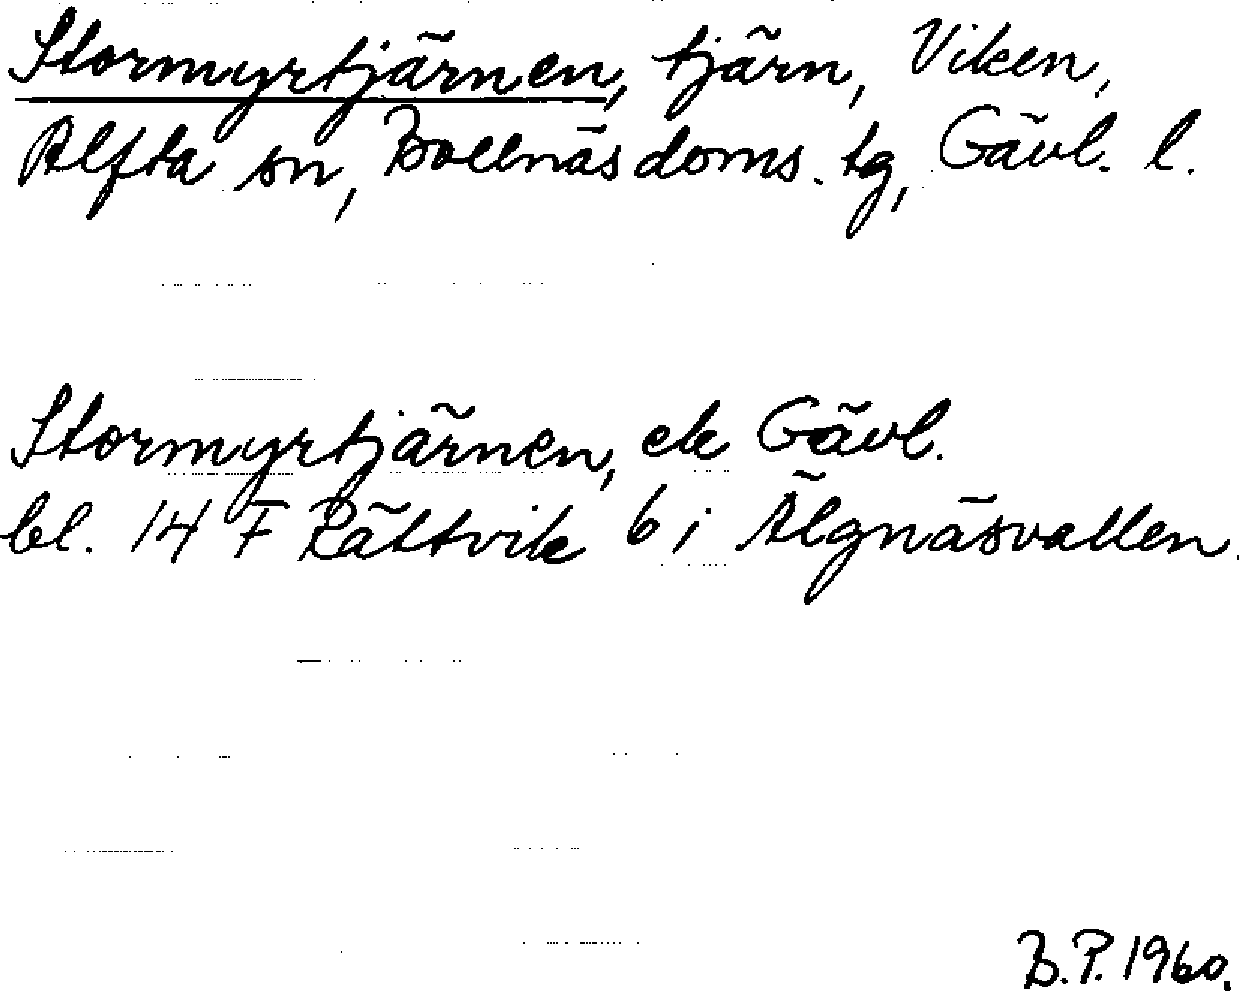 Stormyrtjärnen, tjärn, Viken,
Alfta sn, Bollnäs doms. tg, Gävl. l.
Stormyrtjärnen, ek Gävl.
bl. 14 F Rättvik 6 i Älgnäsvallen.
B.P. 1960.